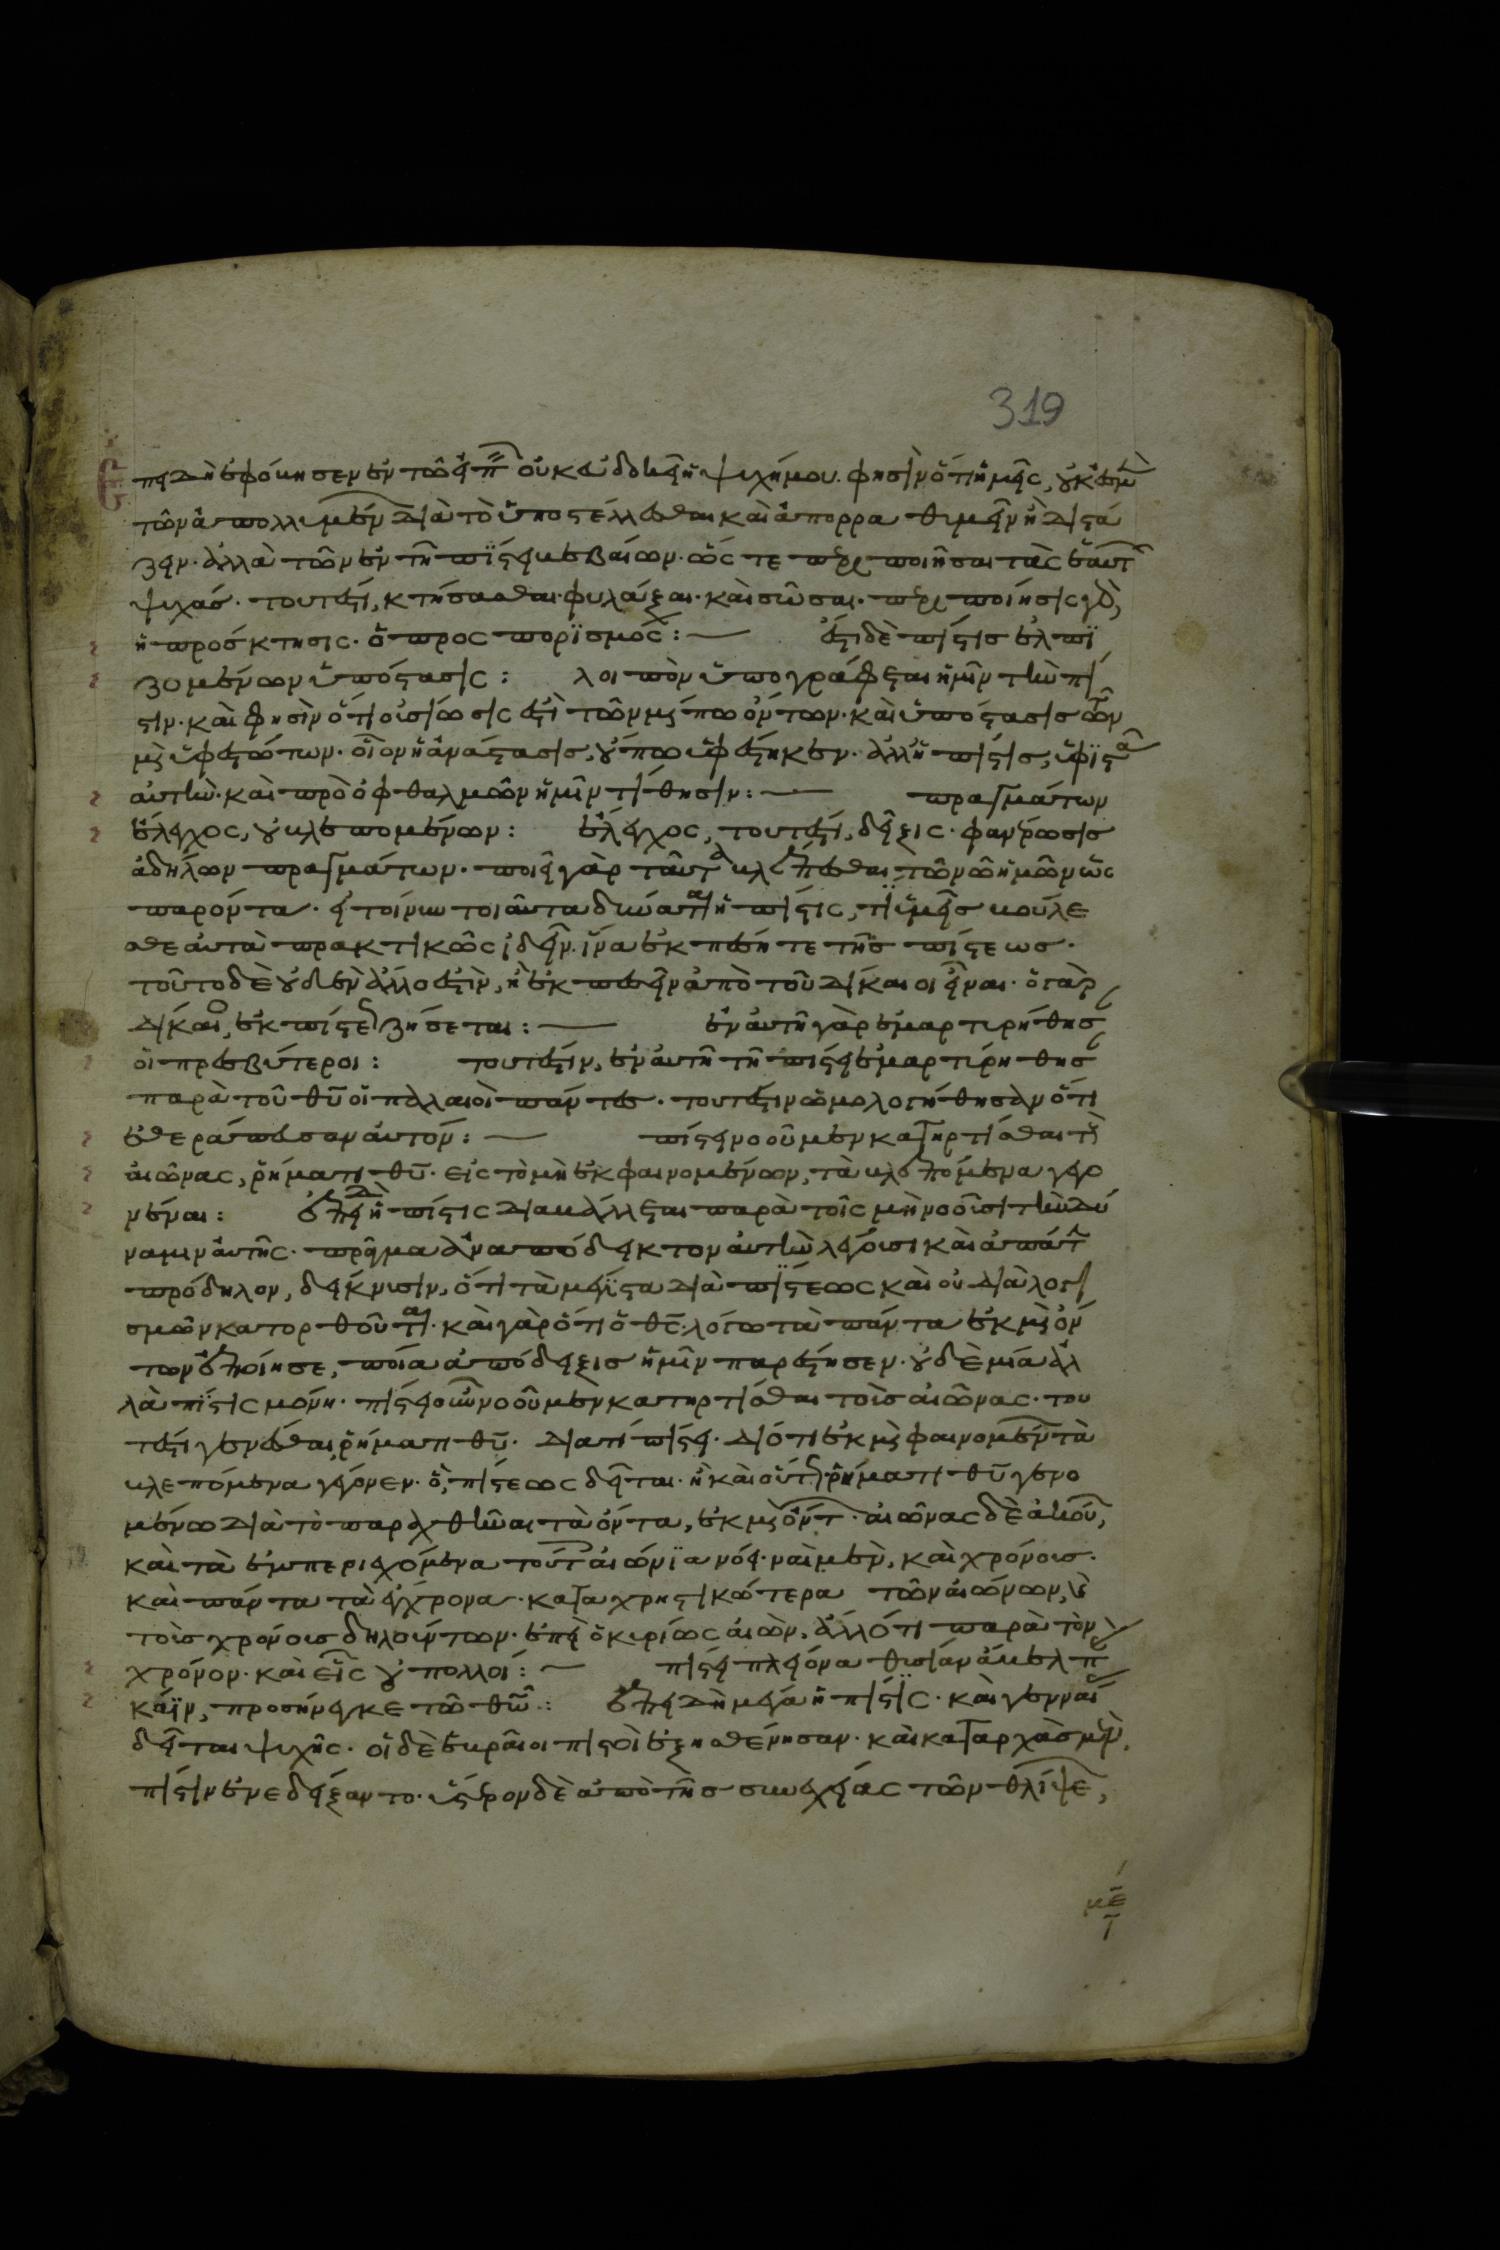 319
Ἐπειδὴ ἐφόβησεν ἐν τῶ εἰπεῖν οὐκ εὐδοκεῖ ἡ ψυχή μου. φησὶν ὅτι ἡμεῖς, οὐκ ἐσμὲν
τῶν ἀπολλυμένων διὰ τὸ ὑποστέλλεσθαι καὶ ἀπορραθυμεῖν ἢ διστά
ζειν. ἀλλὰ τῶν ἐν τῆ πίστει βεβαίων. ὥστε περιποιῆσαι τὰς ἑαυτῶν
ψυχάς. τουτέστι, κτήσασθαι. φυλάξαι. καὶ σῶσαι. περιποίησις γὰρ,
ἡ πρόσκτησις. ὁ προσπορισμός:— ἔστι δὲ πίστις ἐλπι
ζομένων ὑπόστασις: λοιπὸν ὑπογράφεται ἡμῖν τὴν πί
στιν. καὶ φησὶν ὅτι οὐσίωσις ἐστὶ τῶν μήπω ὄντων. καὶ ὑπόστασις τῶν
μὴ ὑφεστώτων. οἷον ἡ ἀνάστασις, οὔπω ὑφέστηκεν. ἀλλ' ἡ πίστις, ὑφιστᾶ
αὐτὴν. καὶ πρὸ ὀφθαλμῶν ἡμῖν τίθησιν:— πραγμάτων
ἔλεγχος, οὐ βλεπομένων: ἔλεγχος, τουτέστι, δεῖξις. φανέρωσις
ἀδήλων πραγμάτων. ποιεῖ γὰρ ταῦτα βλέπεσθαι τῶ νῶ ἡμῶν ὡς
παρόντα. εἰ τοίνυν τοιαῦτα δύναται ἡ πίστις, τί ὑμεῖς βούλε
σθε αὐτὰ πρακτικῶς ἰδεῖν. ἵνα ἐκπέσητε τῆς πίστεως.
τοῦτο δὲ οὐδὲν ἄλλο ἐστὶν, ἢ ἐκπεσεῖν ἀπὸ τοῦ δίκαιοι εἶναι. ὁ γὰρ
δίκαιος, ἐκ πίστεως ζήσεται:— ἐν αὐτῆ γὰρ ἐμαρτυρήθησαν
οἱ πρεσβύτεροι: τουτέστιν, ἐν αὐτῆ τῆ πίστει ἐμαρτυρήθησαν
παρὰ τοῦ θυ οἱ παλαιοὶ πάντες. τουτέστιν ὡμολογήθησαν ὅτι
ἐθεράπευσαν αὐτόν:— πίστει νοοῦμεν κατηρτίσθαι τοὺς
αἰῶνας, ῥήματι θυ. εἰς τὸ μὴ ἐκ φαινομένων, τὰ βλεπόμενα γεγο
νέναι: ἐπειδὴ ἡ πίστις διαβάλλεται παρὰ τοῖς μὴ νοοῦσι τὴν δύ
ναμιν αὐτῆς. πρᾶγμα ἀναπόδεικτον αὐτὴν λέγουσι καὶ ἀπάτην
πρόδηλον, δείκνυσιν, ὅτι τὰ μέγιστα διὰ πίστεως καὶ οὐ διὰ λογι
σμῶν κατορθοῦται. καὶ γὰρ ὅτι ὁ θς λόγω τὰ πάντα ἐκ μὴ ὄν
των ἐποίησε, ποία ἀπόδειξις ἡμῖν παρέστησεν. οὐδεμία ἀλ
λὰ πίστις μόνη. πίστει οὖν νοοῦμεν κατηρτίσθαι τοὺς αἰῶνας. του
τέστι γενέσθαι ῥήματι θυ. διατί πίστει. διότι ἐκ μὴ φαινομένων τὰ
βλεπόμενα γέγονεν. ὃ, πίστεως δεῖται. ἢ καὶ οὕτως ῥήματι θυ γενο
μένω διὰ τὸ παραχθῆναι τὰ ὄντα, ἐκ μὴ ὄντων. αἰῶνας δὲ ἀκού,
καὶ τὰ ἐμπεριχόμενα τούτοις αἰώνια νόει. ναὶ μὲν, καὶ χρόνους.
καὶ πάντα τὰ ἔγχρονα. καταχρηστικώτερα τῶν αἰώνων, καὶ
τοὺς χρόνους δηλούντων. ἐπεὶ ὁ κυρίως αἰὼν, ἄλλό τι παρὰ τὸν
χρόνον. καὶ εἷς οὐ πολλοί:— πίστει πλείονα θυσίαν ἄβελ παρὰ
κάϊν, προσήνεγκε τῶ θῶ: ἐπειδὴ μέγα ἡ πίστις. καὶ γενναίας
δεῖται ψυχῆς. οἱ δὲ ἑβραῖοι πιστοὶ ἐξησθένησαν. καὶ καταρχὰς μὲν,
πίστιν ἐνεδείξαντο. ὕστερον δὲ ἀπὸ τῆς συνεχείας τῶν θλίψε,